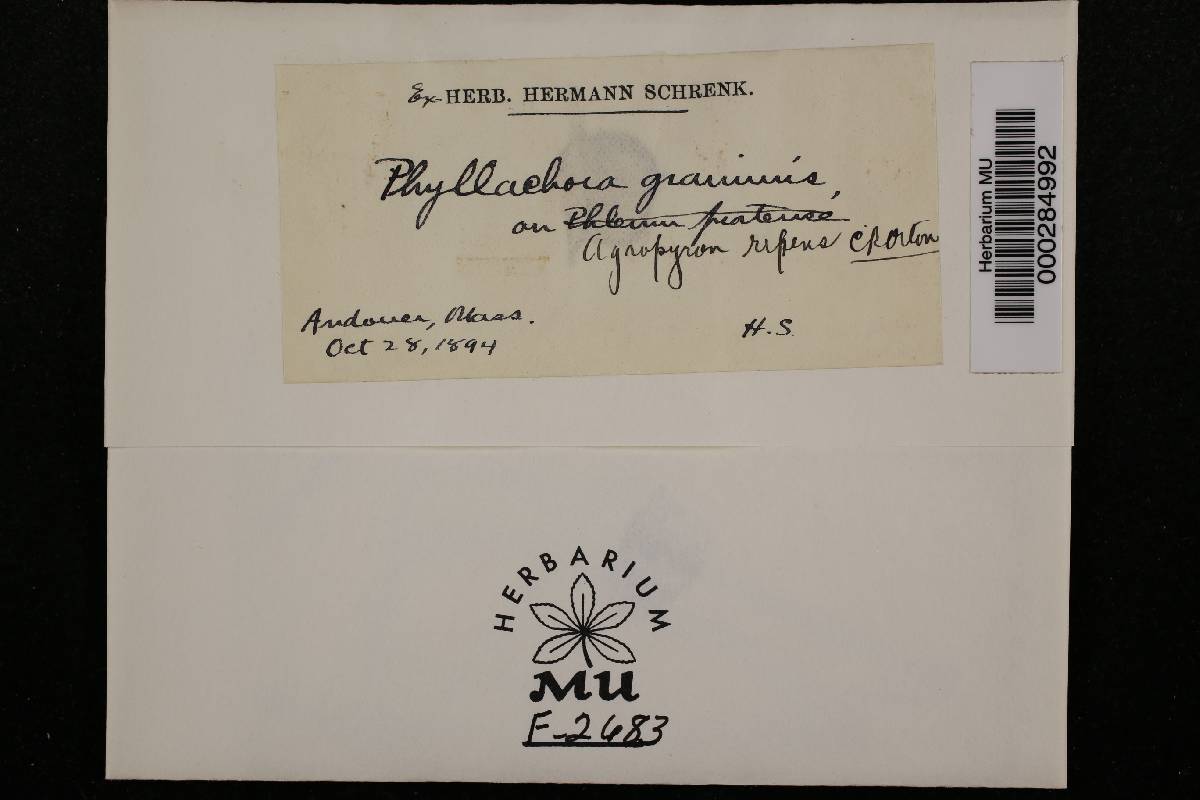 Ex-HERB. HERMANN SCHRENK.
Phyllachora graminis,
on Phleum pratense
Agropyron repens CROrton
Andover, Mass.
Oct 28, 1894
H.S.
Herbarium MU
000284992
HERBARIUM
MU
F-2683